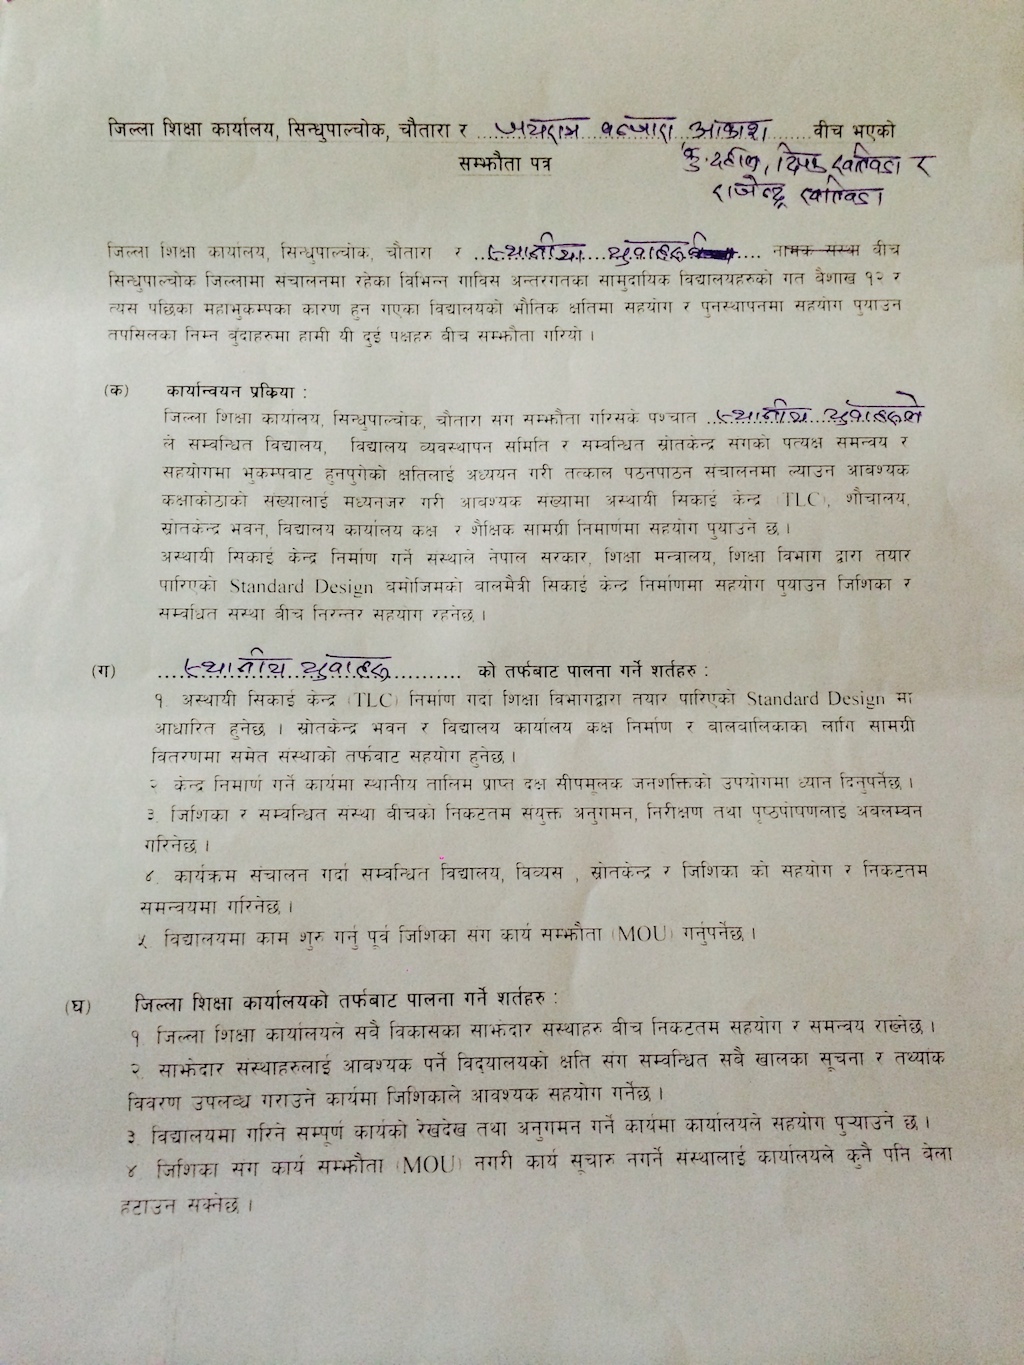 जिल्ला शिक्षा कार्यालय, सिन्धुपाल्चोक, चौतारा र जयराम बन्जारा, आकाश वीच भएको
सम्झौता पत्र कु. दर्हाल, खतिवडा र
राजेन्द्र खतिवडा
जिल्ला शिक्षा कार्यालय, सिन्धुपाल्चोक, चौतारा र स्थानीय युवाहरु नामक संस्था वीच
सिन्धुपाल्चोक जिल्लामा संचालनमा रहेका विभिन्न गाविस अन्तरगतका सामुदायिक विद्यालयहरुको गत बैशाख १२ र
त्यस पछिका महाभुकम्पका कारण हुन गएका विद्यालयको भौतिक क्षतिमा सहयोग र पुनस्थापनमा सहयोग पुयाउन
तपसिलका निम्न बुंदाहरुमा हामी यी दुई पक्षहरु वीच सम्झौता गरियो ।
(क) कार्यान्वयन प्रक्रिया :
जिल्ला शिक्षा कार्यालय, सिन्धुपाल्चोक, चौतारा संग सम्झौता गरिसके पश्चात स्थानीय युवाहरुले
ले सम्वन्धित विद्यालय, विद्यालय व्यवस्थापन समिति र सम्वन्धित स्रोतकेन्द्र संगको पत्यक्ष समन्वय र
सहयोगमा भुकम्पवाट हुनपुगेको क्षतिलाई अध्ययन गरी तत्काल पठनपाठन संचालनमा ल्याउन आवश्यक
कक्षाकोठाको संख्यालाई मध्यनजर गरी आवश्यक संख्यामा अस्थायी सिकाई केन्द्र (TLC), शौचालय,
स्रोतकेन्द्र भवन, विद्यालय कार्यालय कक्ष र शैक्षिक सामग्री निमार्णमा सहयोग पुयाउने छ ।
अस्थायी सिकाई केन्द्र निर्माण गर्ने संस्थाले नेपाल सरकार, शिक्षा मन्त्रालय, शिक्षा विभाग द्वारा तयार
पारिएको Standard Design वमोजिमको वालमैत्री सिकाई केन्द्र निर्माणमा सहयोग पुयाउन जिशिका र
सम्वधित संस्था वीच निरन्तर सहयोग रहनेछ ।
(ग) स्थानीय युवाहरु को तर्फबाट पालना गर्ने शर्तहरु :
१. अस्थायी सिकाई केन्द्र (TLC) निर्माण गर्दा शिक्षा विभागद्वारा तयार पारिएको Standard Design मा
आधारित हुनेछ । स्रोतकेन्द्र भवन र विद्यालय कार्यालय कक्ष निर्माण र बालबालिकाका लागि सामग्री
वितरणमा समेत संस्थाको तर्फबाट सहयोग हुनेछ ।
२. केन्द्र निमार्ण गर्ने कार्यमा स्थानीय तालिम प्राप्त दक्ष सीपमूलक जनशक्तिको उपयोगमा ध्यान दिनुपर्नेछ ।
३. जिशिका र सम्वन्धित संस्था बीचको निकटतम संयुक्त अनुगमन, निरीक्षण तथा पृष्ठपोषणलाई अवलम्वन
गरिनेछ ।
४. कार्यक्रम संचालन गर्दा सम्वन्धित विद्यालय, विव्यस , स्रोतकेन्द्र र जिशिका को सहयोग र निकटतम
समन्वयमा गरिनेछ ।
५. विद्यालयमा काम शुरु गर्नु पूर्व जिशिका संग कार्य सम्झौता (MOU) गर्नुपर्नेछ ।
(घ) जिल्ला शिक्षा कार्यालयको तर्फबाट पालना गर्ने शर्तहरु :
१. जिल्ला शिक्षा कार्यालयले सवै विकासका साझेदार संस्थाहरु वीच निकटतम सहयोग र समन्वय राख्नेछ ।
२. साझेदार संस्थाहरुलाई आवश्यक पर्ने विदयालयको क्षति संग सम्वन्धित सवै खालका सूचना र तथ्यांक
विवरण उपलव्ध गराउने कार्यमा जिशिकाले आवश्यक सहयोग गर्नेछ ।
३. विद्यालयमा गरिने सम्पूर्ण कार्यको रेखदेख तथा अनुगमन गर्ने कार्यमा कार्यालयले सहयोग पुऱ्याउने छ ।
४. जिशिका संग कार्य सम्झौता (MOU) नगरी कार्य सूचारु नगर्ने संस्थालाई कार्यालयले कुनै पनि वेला
हटाउन सक्नेछ ।